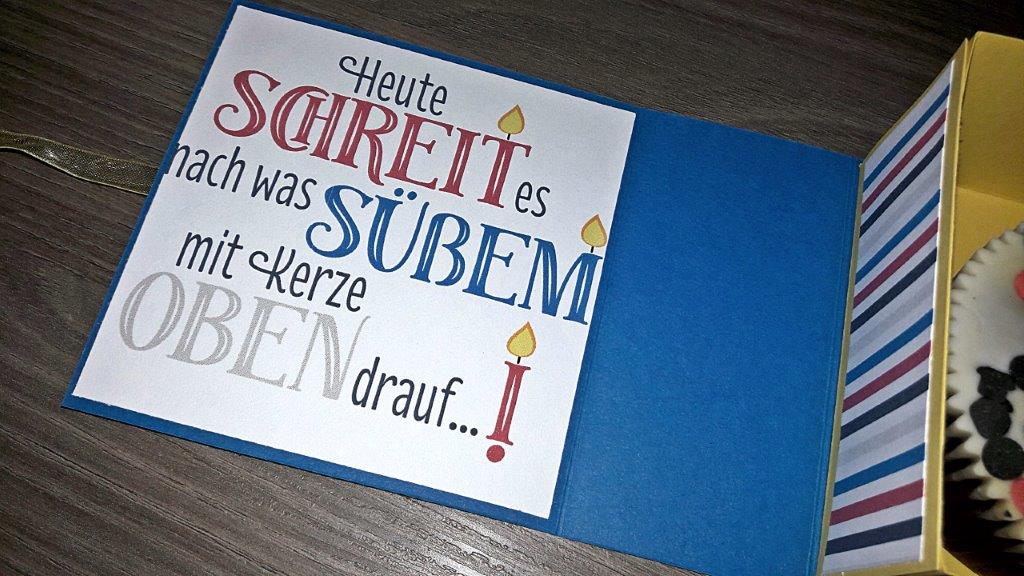 Heute
SCHREIT es
nach was SÜßEM
mit Kerze
OBEN drauf...!